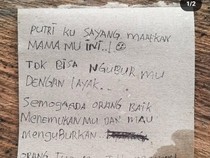 1/2
PUTRI KU SAYANG, MAAFKAN
MAMA MU INI..!
TDK BISA NGUBUR MU
DENGAN LAYAK...
SEMOGA ADA ORANG BAIK
MENEMUKAN MU DAN MAU
MENGUBURKAN
ORANG